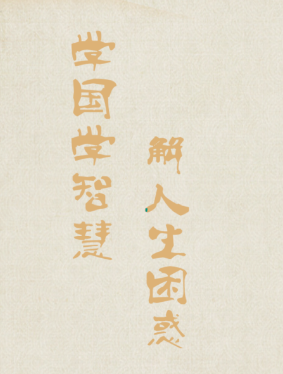 学国学智慧
解人生困惑